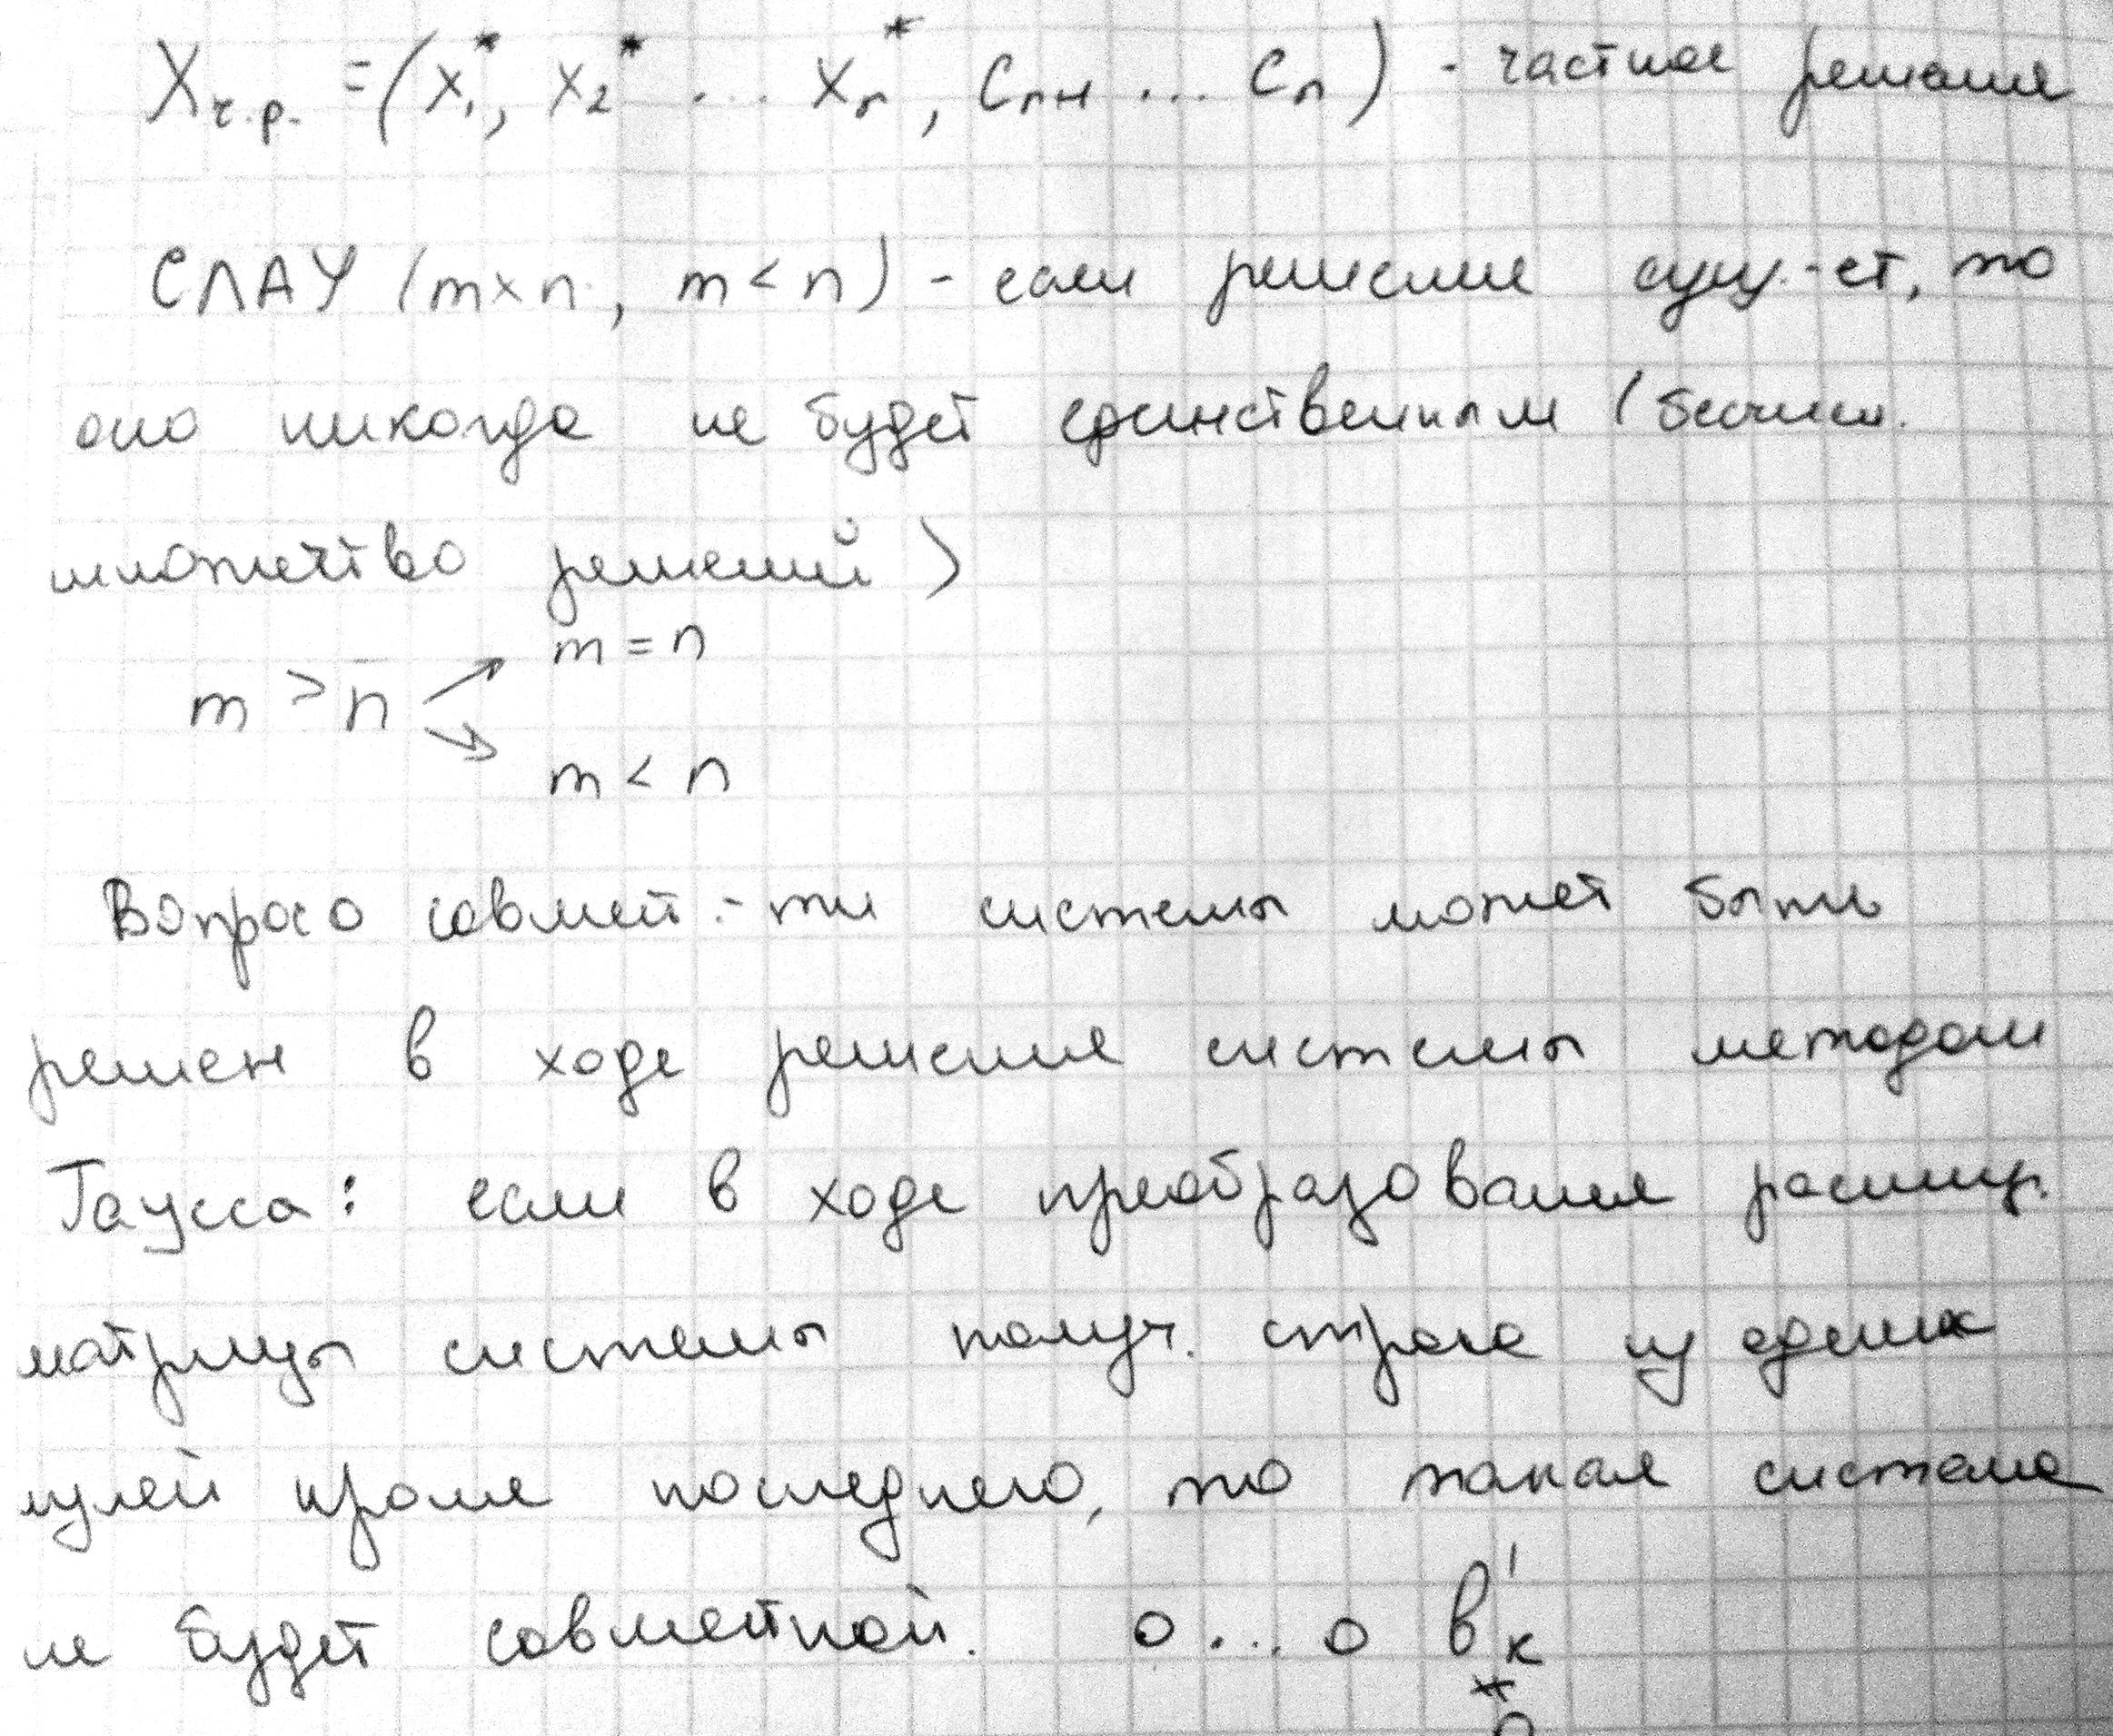 Xч.р. = (x₁*, x₂* ... xₙ*, Cₙ₊₁ ... Cₙ) - частное решение
СЛАУ (m×n, m < n) - если решение сущ.-ет, то
оно никогда не будет единственным (бесчисл.
множество решений)
m = n
m > n
m < n
Вопрос о совмест.-ти системы может быть
решен в ходе решения системы методом
Гаусса: если в ходе преобразования расшир.
матрицы системы получ. строка из одних
нулей кроме последнего, то такая система
не будет совместной. 0 ... 0 в'к
≠
0